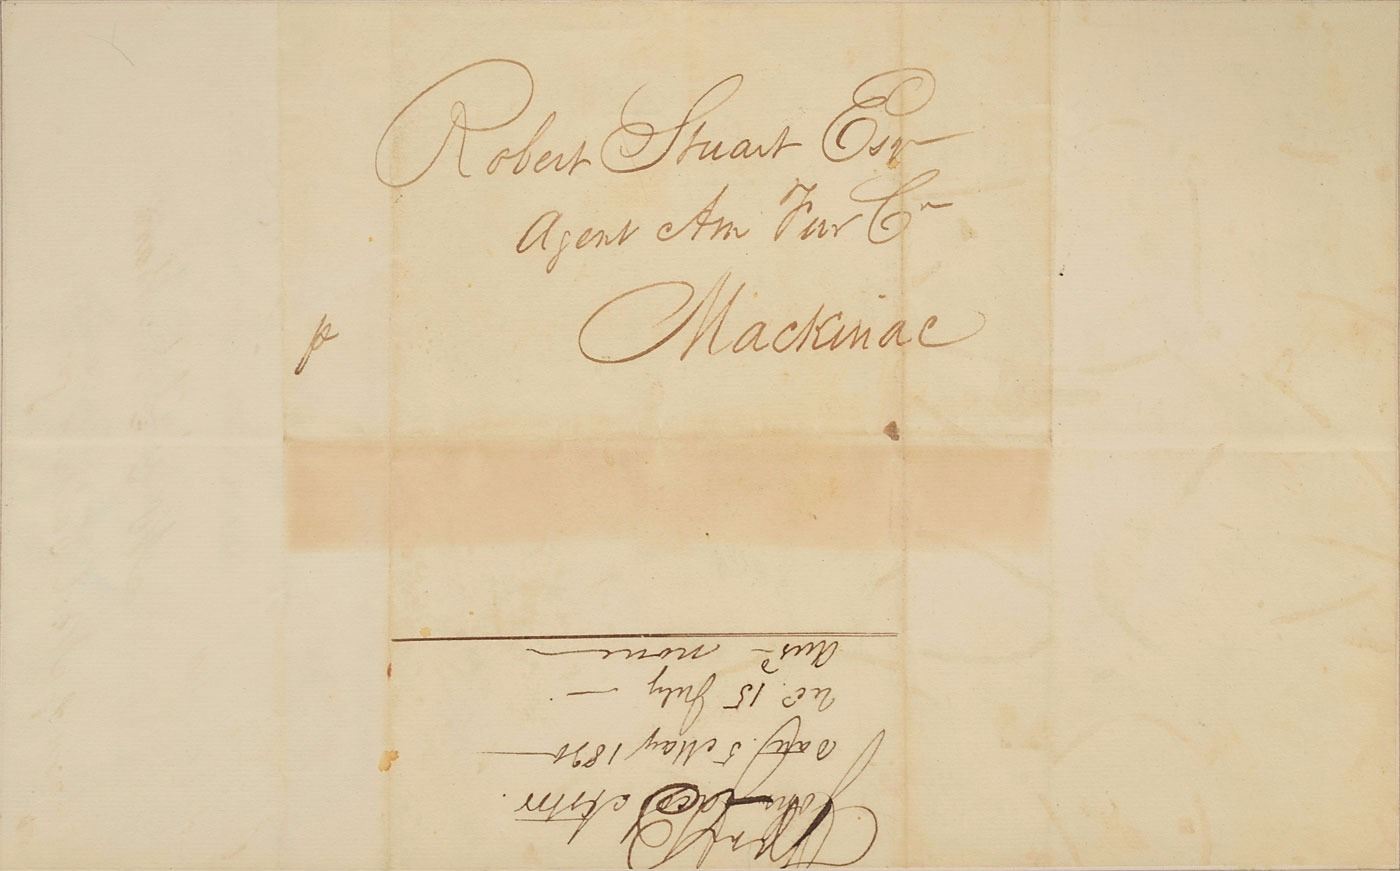 Robert Stuart Esqr
Agent Am Fur Co
Mackinac
p
John Jacob Astor
Dated 5 May 1820
rec. 15 July
Ansd none